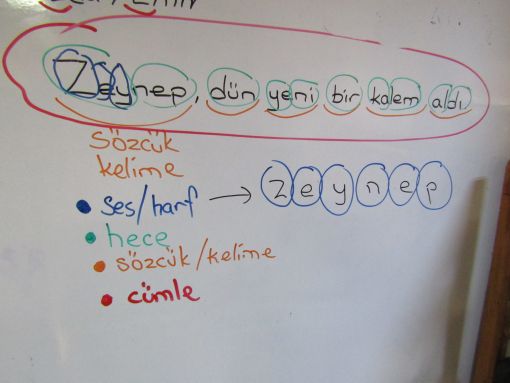 Zeynep, dün yeni bir kalem aldı
sözcük
kelime
• ses/harf → Z e y n e p
• hece
• sözcük/kelime
• cümle